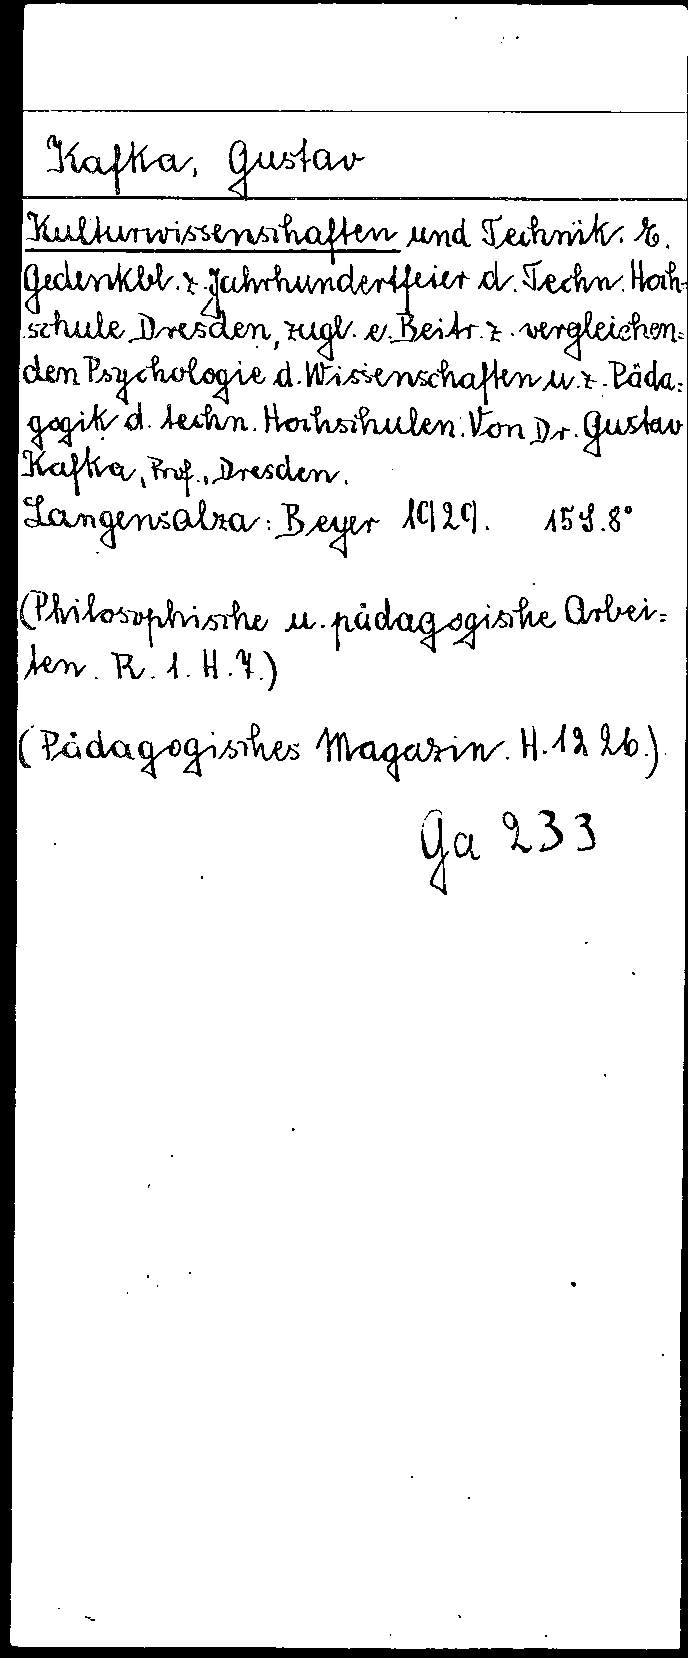 Kafka, Gustav
Kulturwissenschaften und Technik. E.
Gedenkbl. z. Jahrhundertfeier d. Techn. Hoch-
schule Dresden, zugl. e. Beitr. z. vergleichen=
den Psychologie d. Wissenschaften u. z. Päda=
gogik d. techn. Hochschulen. Von Dr. Gustav
Kafka, Prof., Dresden.
Langensalza: Beyer 1929. 15 S. 8°
(Philosophische u. pädagogische Arbei=
ten. R. 1. H. 7.)
(Pädagogisches Magazin. H. 1226.)
Ga 233